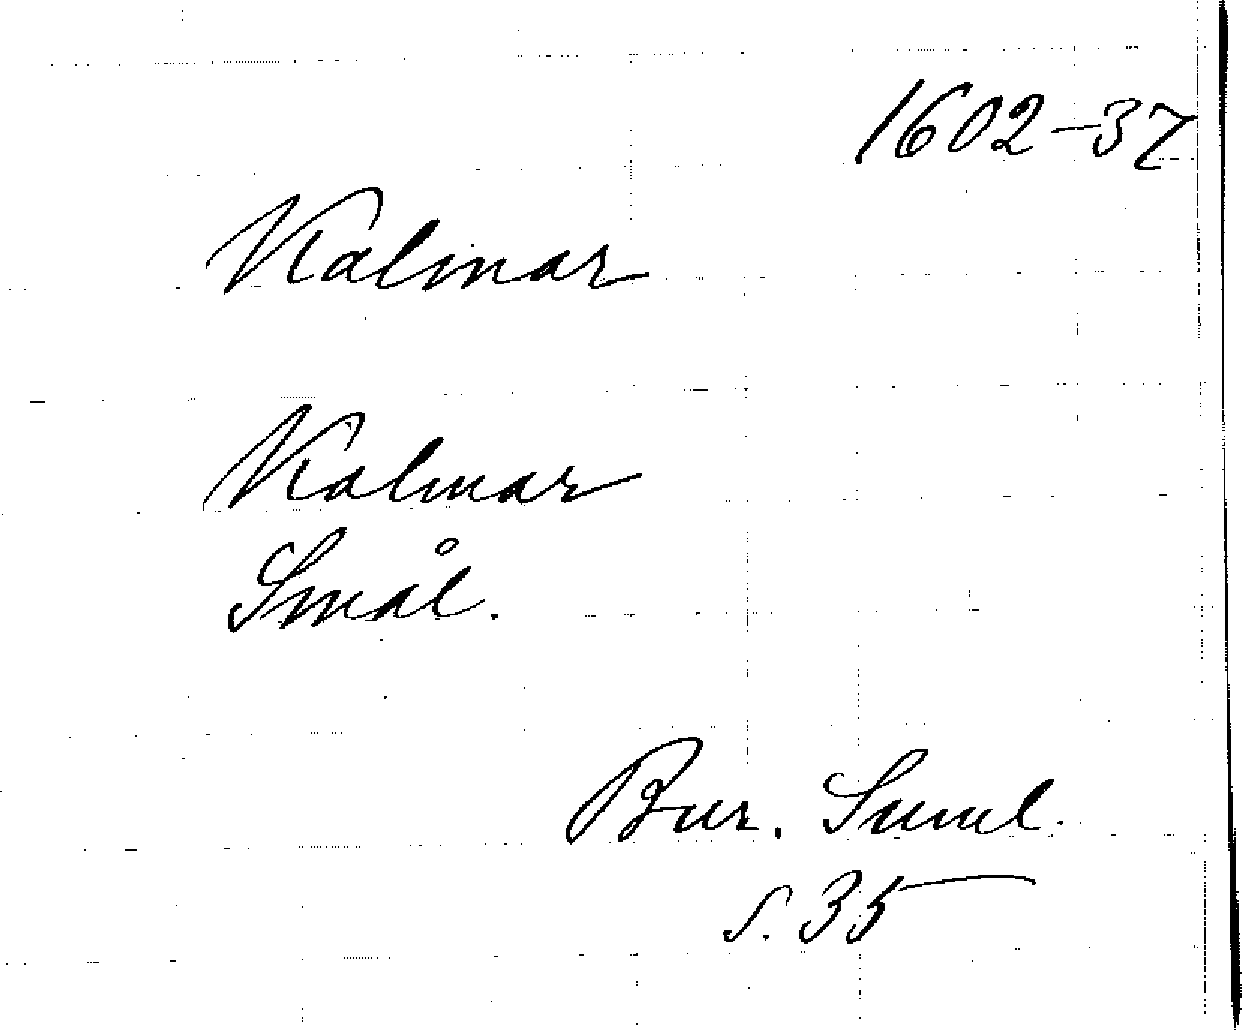 1602-37
Kalmar
Kalmar
Smål.
Bur. Suml.
s. 35